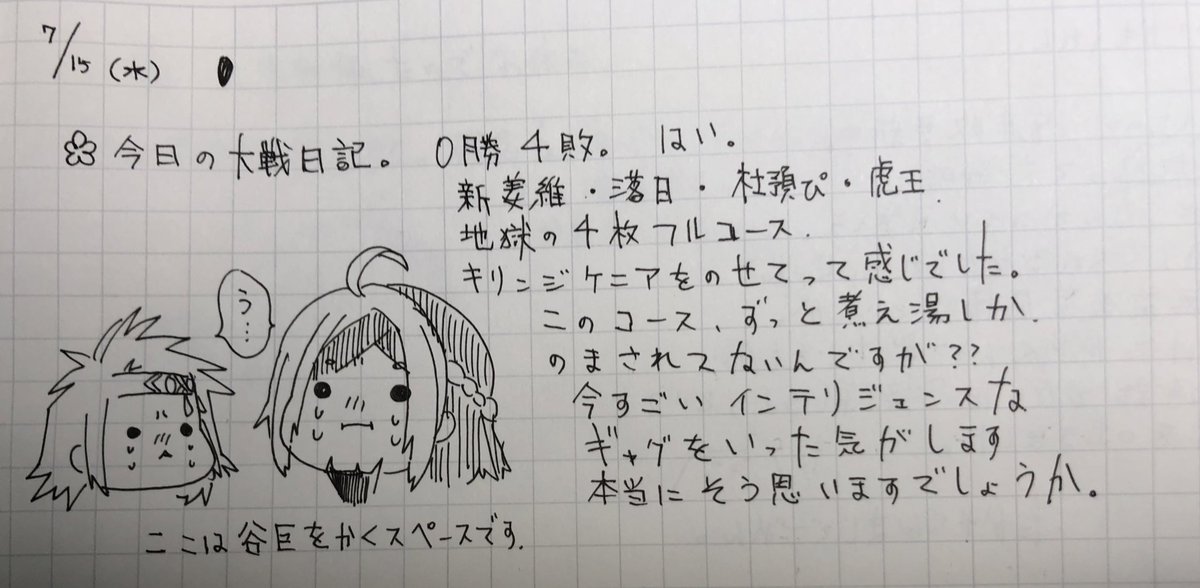 7/15(水)
今日の大戦日記。 0勝4敗。 はい。
新姜維・落日・杜預ぴ・虎王.
地獄の4枚フルコース.
キリンジケニアをのせてって感じでした。
このコース、ずっと煮え湯しか
のまされてないんですが??
今すごいインテリジェンスな
ギャグをいった気がします
本当にそう思いますでしょうか。
う…
ここは谷巨をかくスペースです.